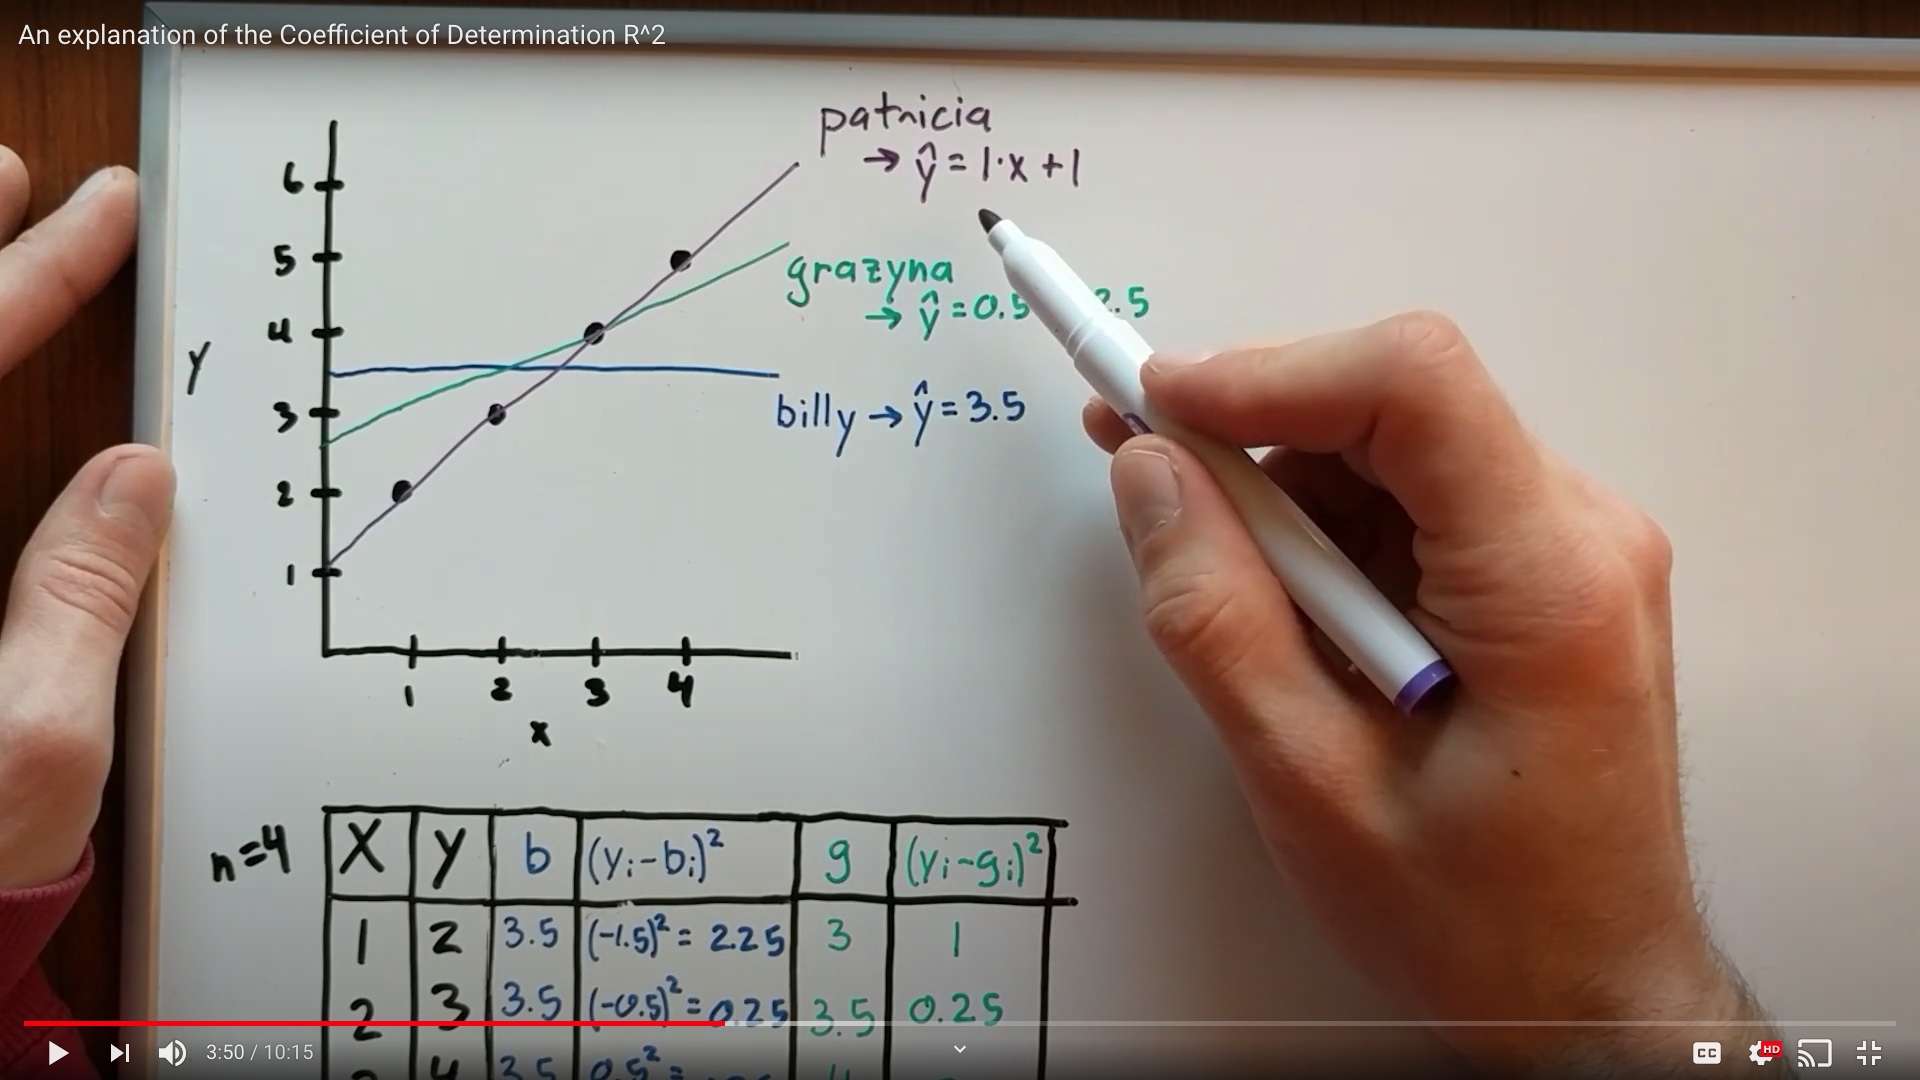 An explanation of the Coefficient of Determination R^2
patricia
→ ŷ = 1·x + 1
6
5
4
3
2
1
y
grazyna
→ ŷ = 0.5 2.5
billy → ŷ = 3.5
1 2 3 4
x
n=4
X Y b (yi-bi)² g (yi-gi)²
1 2 3.5 (-1.5)² = 2.25 3 1
2 3 3.5 (-0.5)² = 0.25 3.5 0.25
3 4 3.5 0.5² = 4
3:50 / 10:15
CC
HD